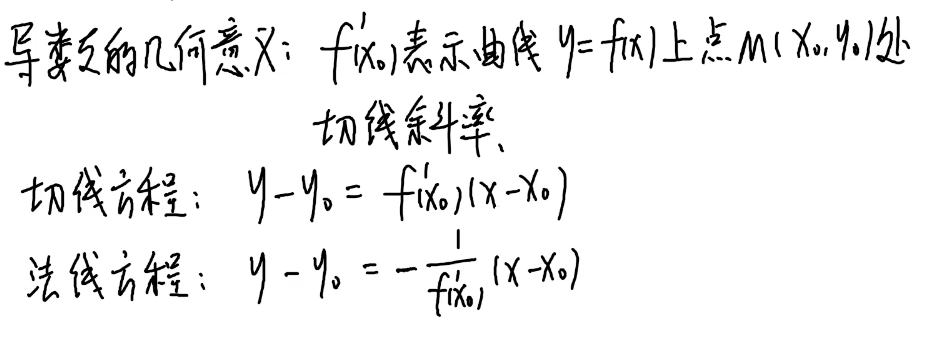 导数的几何意义: f'(x₀)表示曲线 y=f(x)上点M(x₀,y₀)处
切线斜率、
切线方程: y-y₀ = f'(x₀)(x-x₀)
法线方程: y-y₀ = -1/f'(x₀) (x-x₀)